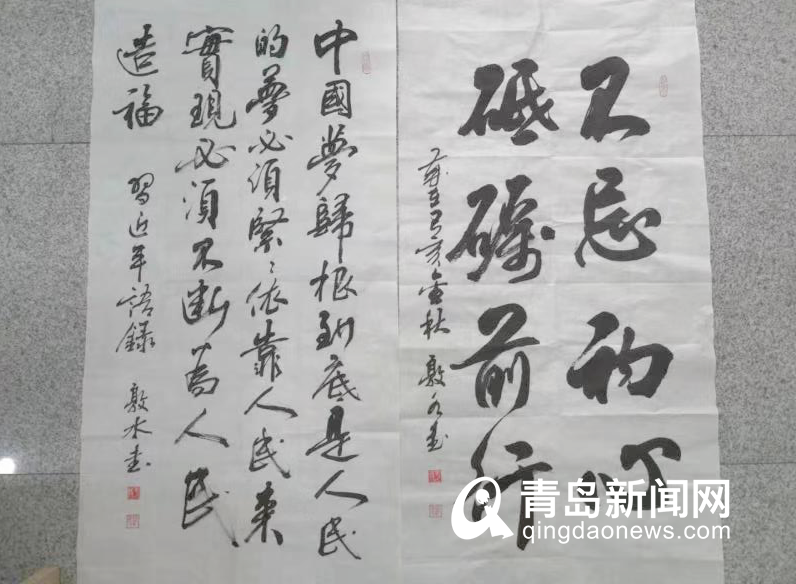 不忘初心
砥礪前行
歲在己亥金秋 敦水书
中國夢歸根到底是人民
的夢必須緊〻依靠人民来
實現必須不断為人民
造福 習近平語錄 敦水书
青岛新闻网
qingdaonews.com